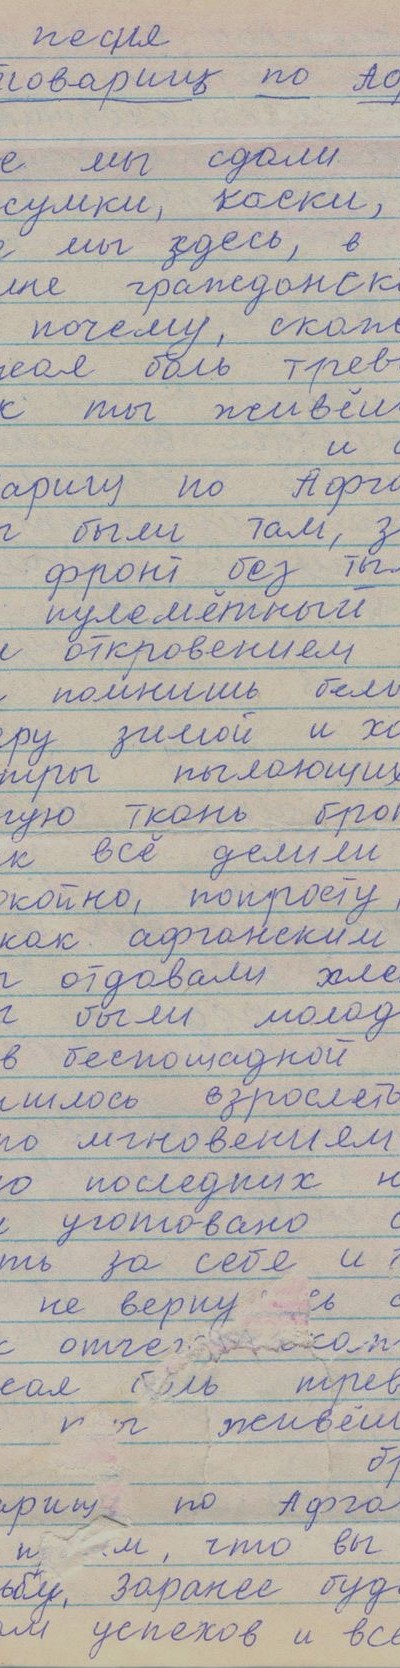 песня
товарищ по Аф
е мы сдали
сумки, каски,
мы здесь, в
мне гражданск
почему, скаж
жая боль трев
к ты живёш
и
варищ по Афга
ы были там, з
фронт без тыл
пулемётный
м откровением
помнишь белы
еру зимой и хо
тры пылающих
гую ткань брон
ак всё делили
окойно, попросту,
как афганским
ы отдавали хле
ы были молод
в беспощадной
ишлось взрослеть
по мгновениям
до последних н
м уготовано
ть за себе и
не верну сь с
к отчег
жая боль трев
живёш
бр
варищ по Афга
м, что вы
ьбу, заранее буд
ам успехов и все